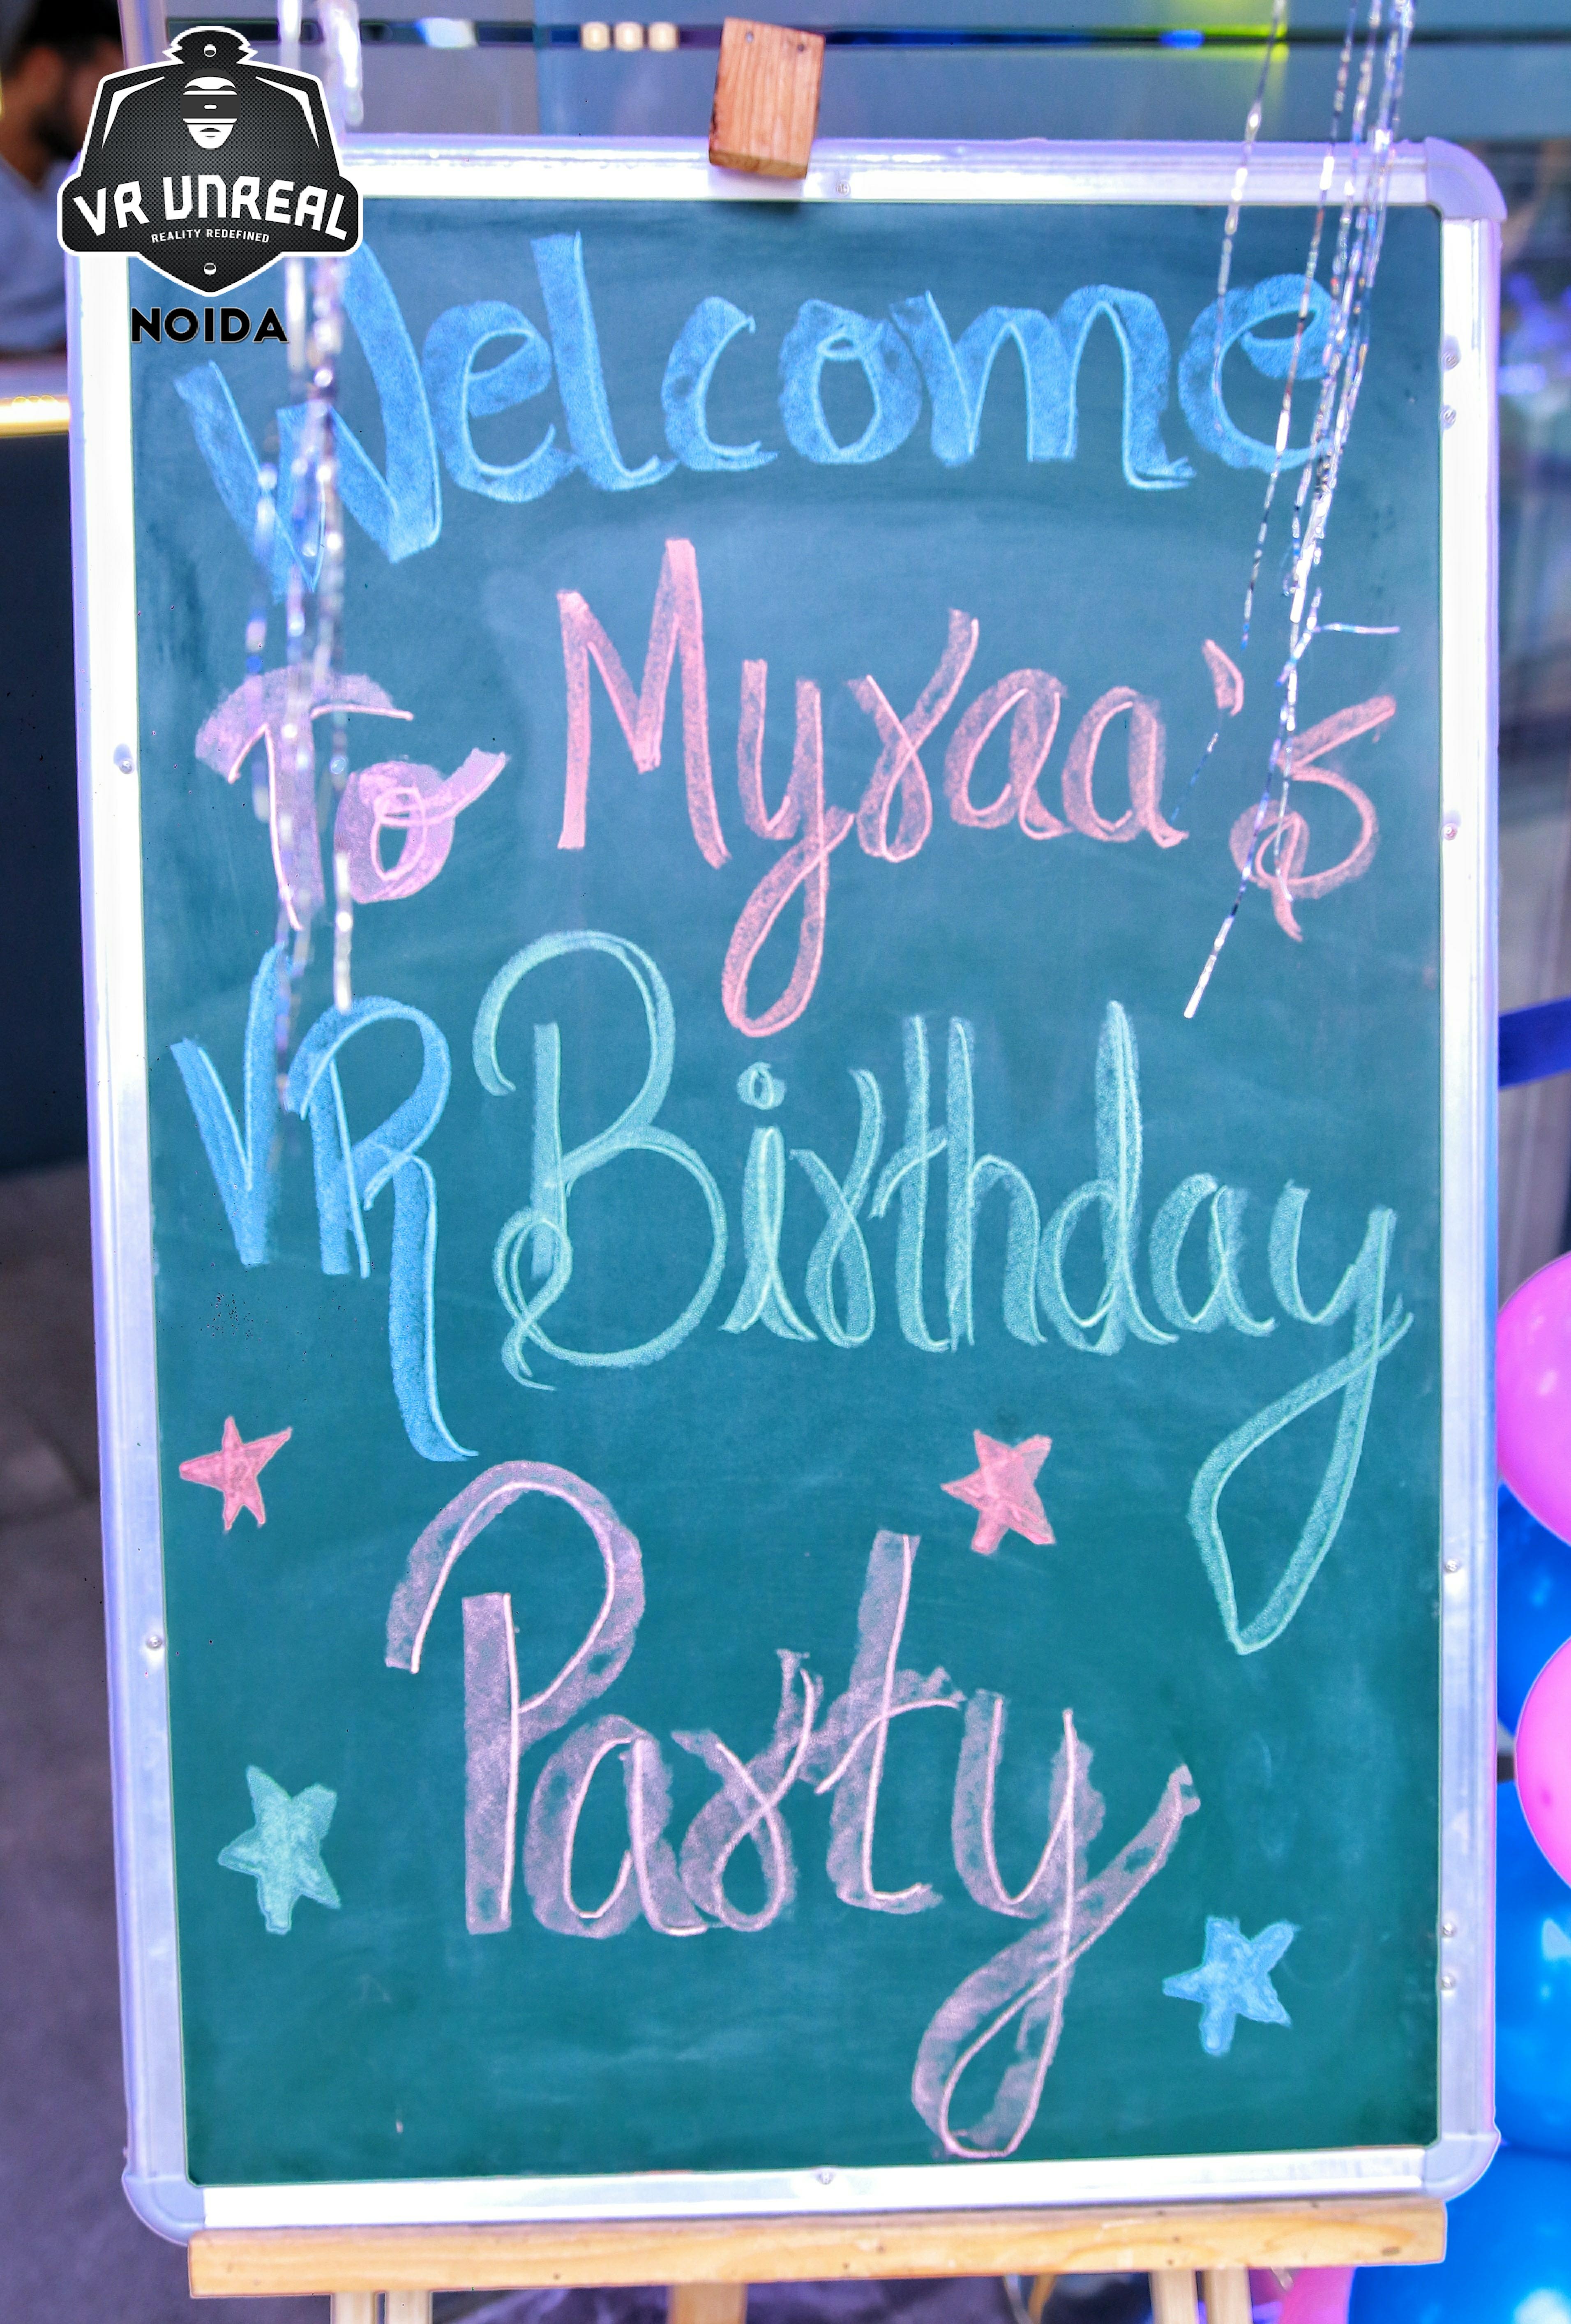 VR UNREAL
REALITY REDEFINED
NOIDA
Welcome
To Myraa's
VR Birthday
Party